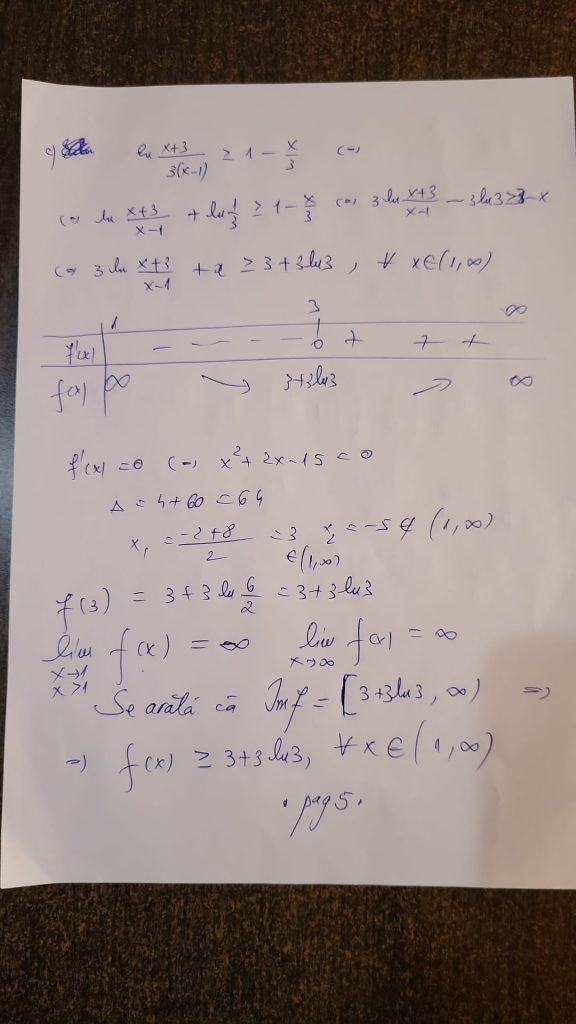 c) ln (x+3)/(3(x-1)) ≥ 1 - x/3 (=)
(=) ln (x+3)/(x-1) + ln 1/3 ≥ 1 - x/3 (=) 3 ln (x+3)/(x-1) - 3 ln 3 ≥ 3 - x
(=) 3 ln (x+3)/(x-1) + x ≥ 3 + 3 ln 3, ∀ x ∈ (1, ∞)
1 3 ∞
f'(x) - - - - - 0 + + +
f(x) ∞ ↘ 3+3ln3 ↗ ∞
f'(x) = 0 (=) x² + 2x - 15 = 0
Δ = 4 + 60 = 64
x₁ = (-2+8)/2 = 3 x₂ = -5 ∉ (1, ∞)
∈ (1, ∞)
f(3) = 3 + 3 ln 6/2 = 3 + 3 ln 3
lim f(x) = ∞ lim f(x) = ∞
x→1 x→∞
x>1
Se arată că Im f = [3+3ln3, ∞) =)
=) f(x) ≥ 3+3 ln 3, ∀ x ∈ (1, ∞)
· pag 5 ·